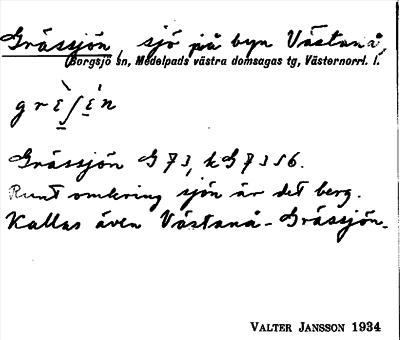 Grässjön, sjö på byn Västanå,
Borgsjö sn, Medelpads västra domsagas tg, Västernorrl. l.
Grässjön G 73, kG 73 s 56.
Runt omkring sjön är det berg.
Kallas även Västanå-Grässjön.
VALTER JANSSON 1934